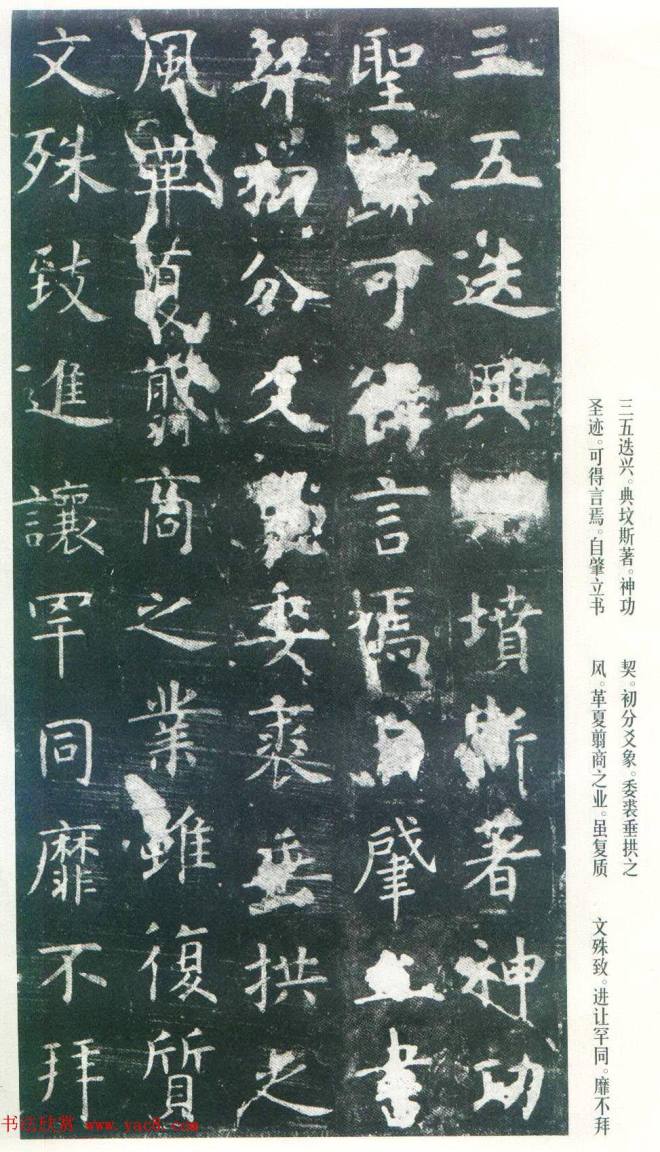 三五迭興墳斯著神功
聖可得言焉自肇立書
契初分爻象委裘垂拱之
風革夏翦商之業雖復質
文殊致進讓罕同靡不拜
三五迭兴。典坟斯著。神功
圣迹。可得言焉。自肇立书
契。初分爻象。委裘垂拱之
风。革夏翦商之业。虽复质
文殊致。进让罕同。靡不拜
书法欣赏 www.yac8.com